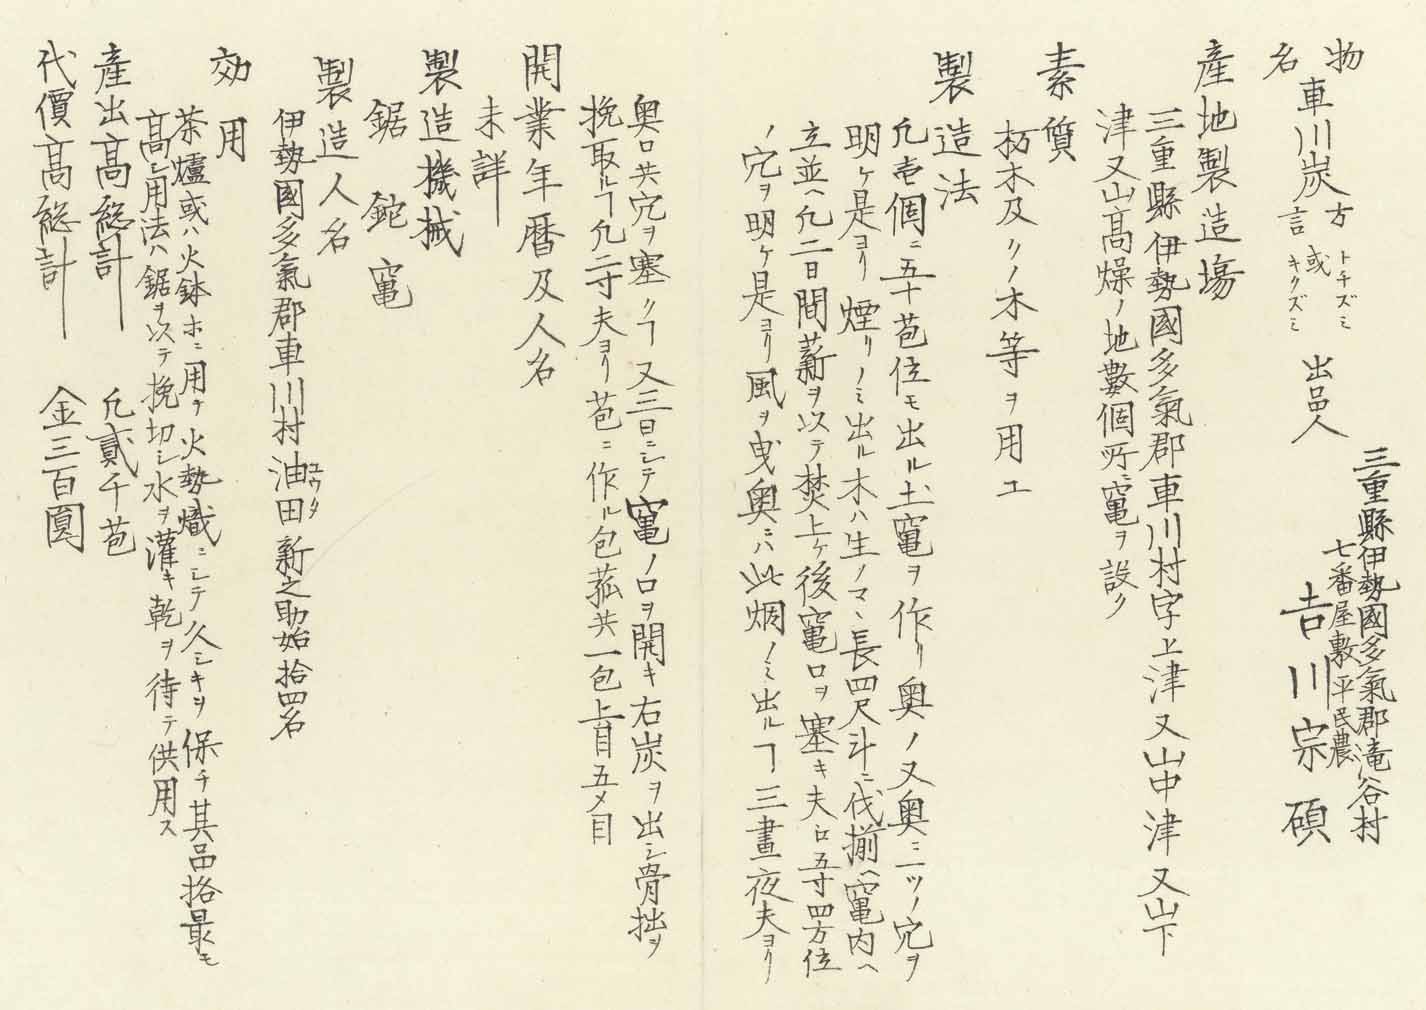 物名
車川炭
方言
トチズミ
或
キクズミ
出品人
三重縣伊勢國多氣郡滝谷村
七番屋敷平民農
吉川宗碩
産地製造塲
三重縣伊勢國多氣郡車川村字上津又山中津又山下
津又山髙燥ノ地數個所ニ竃ヲ設ク
素質
杤木及クノ木等ヲ用ユ
製造法
凢壱個ニ五十苞位モ出ル土竃ヲ作リ奥ノ又奥ニ二ツノ穴ヲ
明ケ是ヨリ煙リノミ出ル木ハ生ノマヽ長四尺斗ニ伐揃ヘ竃内ヘ
立並ヘ凢二日間薪ヲ以テ焚上ケ後竃口ヲ塞キ夫ロ五寸四方位
ノ穴ヲ明ケ是ヨリ風ヲ曳奥ニハ此烟ノミ出ルヿ三晝夜夫ヨリ
奥口共穴ヲ塞クヿ又三日ニシテ竃ノ口ヲ開キ右炭ヲ出シ骨拙ヲ
挽取ルヿ凢二寸夫ヨリ苞ニ作ル包菰共一包上目五〆目
開業年暦及人名
未詳
製造機械
鋸 鉈 竃
製造人名
伊勢國多氣郡車川村油田新之助始拾四名
ユウタ
効用
茶爐或ハ火鉢ホニ用ヂ火勢熾ニシテ久シキヲ保チ其品挌最モ
髙シ用法ハ鋸ヲ以テ挽切シ水ヲ灌キ乾ヲ待テ供用ス
産出髙総計 凢貳千苞
代價髙総計 金三百圓